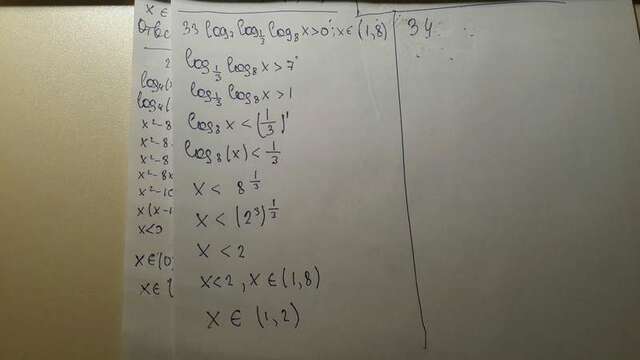 x ∈
Отве
2
log₄(
log₄(
x²-8
x²-8
x²-8
x²-8x
x²-10
x(x-1
x<9
x∈(0;
x∈(
33 log₇ log_{1/3} log₈ x>0; x∈(1,8)
log_{1/3} log₈ x > 7°
log_{1/3} log₈ x > 1
log₈ x < (1/3)¹
log₈(x) < 1/3
x < 8^{1/3}
x < (2³)^{1/3}
x < 2
x<2, x∈(1,8)
x ∈ (1,2)
34